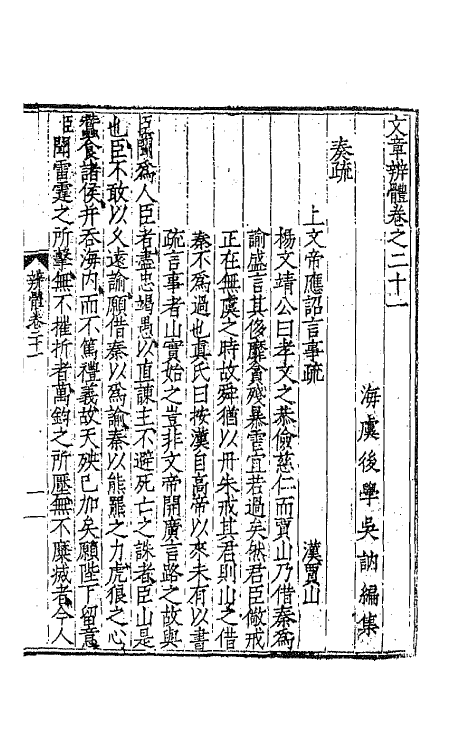 文章辨體卷之二十一
海虞後學吳訥編集
奏疏
上文帝應詔言事疏　漢賈山
楊文靖公曰孝文之恭儉慈仁而賈山乃借秦為
諭盛言其後靡貪殘暴虐宜若過矣然君臣儆戒
正在無虞之時故舜猶以丹朱戒其君則山之借
秦不為過也真氏曰按漢自高帝以來未有以書
疏言事者山實始之豈非文帝開廣言路之故與
臣聞為人臣者盡忠竭愚以直諫主不避死亡之誅者臣山是
也臣不敢以久遠諭願借秦以為諭秦以能羆之力虎狼之心
蠶食諸侯并吞海內而不篤禮義故天殃已加矣願陛下留意
臣聞雷霆之所擊無不摧折者萬鈞之所壓無不糜滅者今人
辨體卷二十一
一